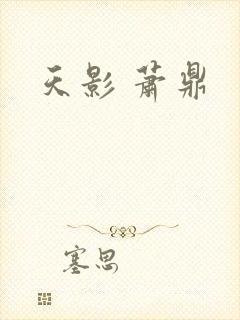 天影 萧鼎
塞思